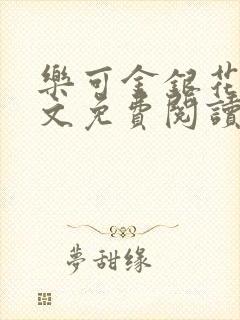 樂可金銀花
文免費閱讀
夢甜缘